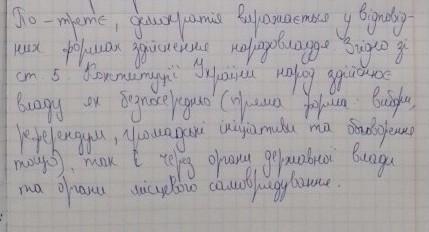 По-третє, демократія виражається у відповід-
них формах здійснення народовладдя Згідно зі
ст. 5 Конституції України народ здійснює
владу як безпосередньо (пряма форма: вибори,
референдум, громадські ініціативи та обговорення
тощо), так і через органи державної влади
та органи місцевого самоврядування.